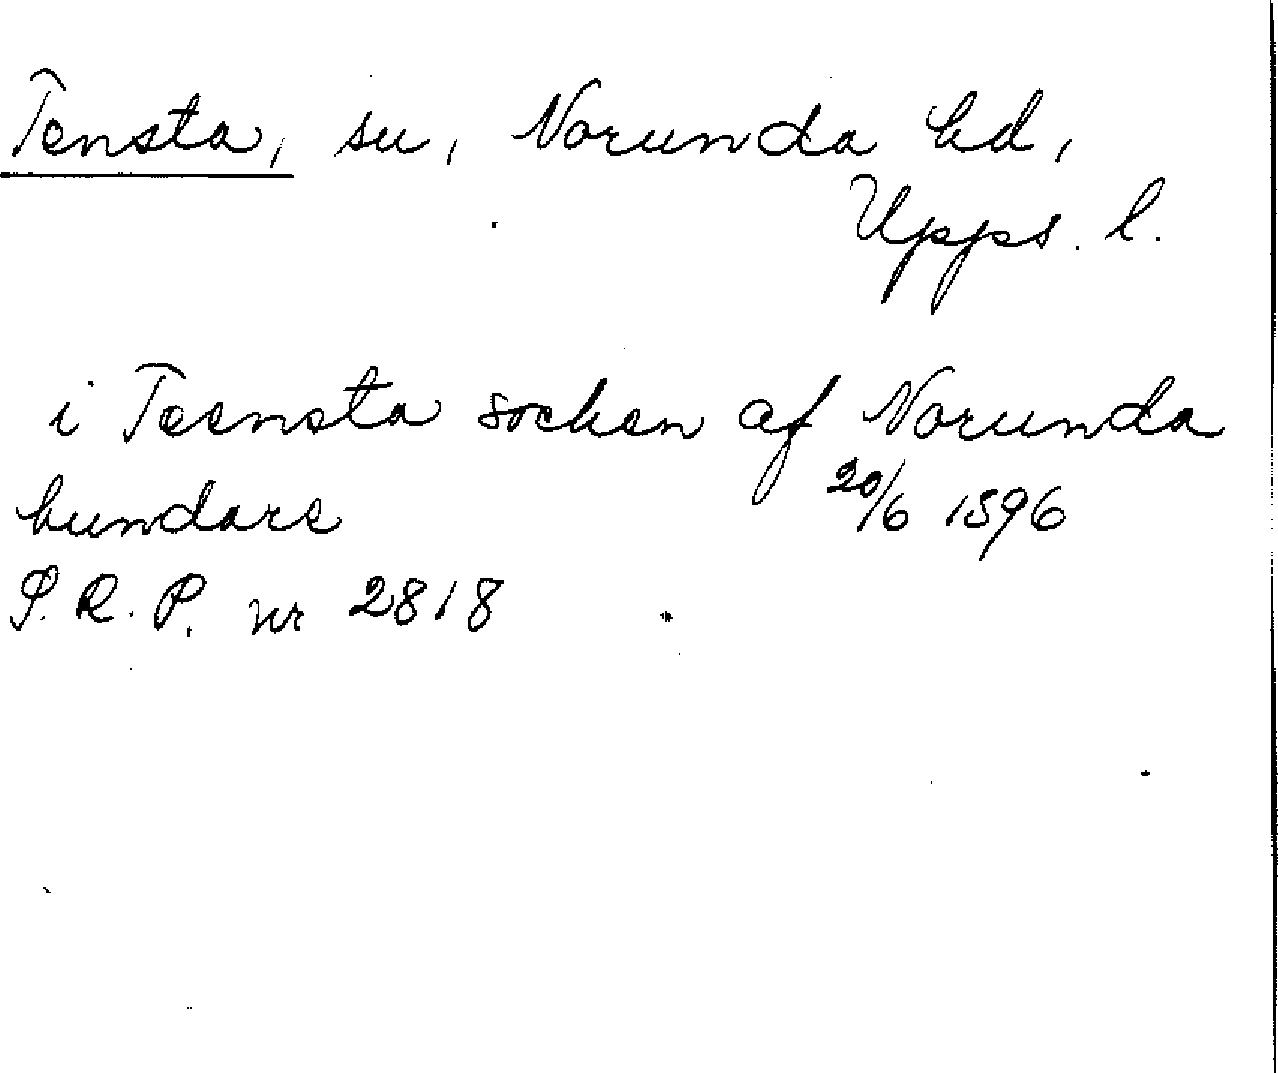 Tensta, sn, Norunda hd,
Upps. l.
i Teensta socken af Norunda
hundare 20/6 1396
S.R.P. nr 2818